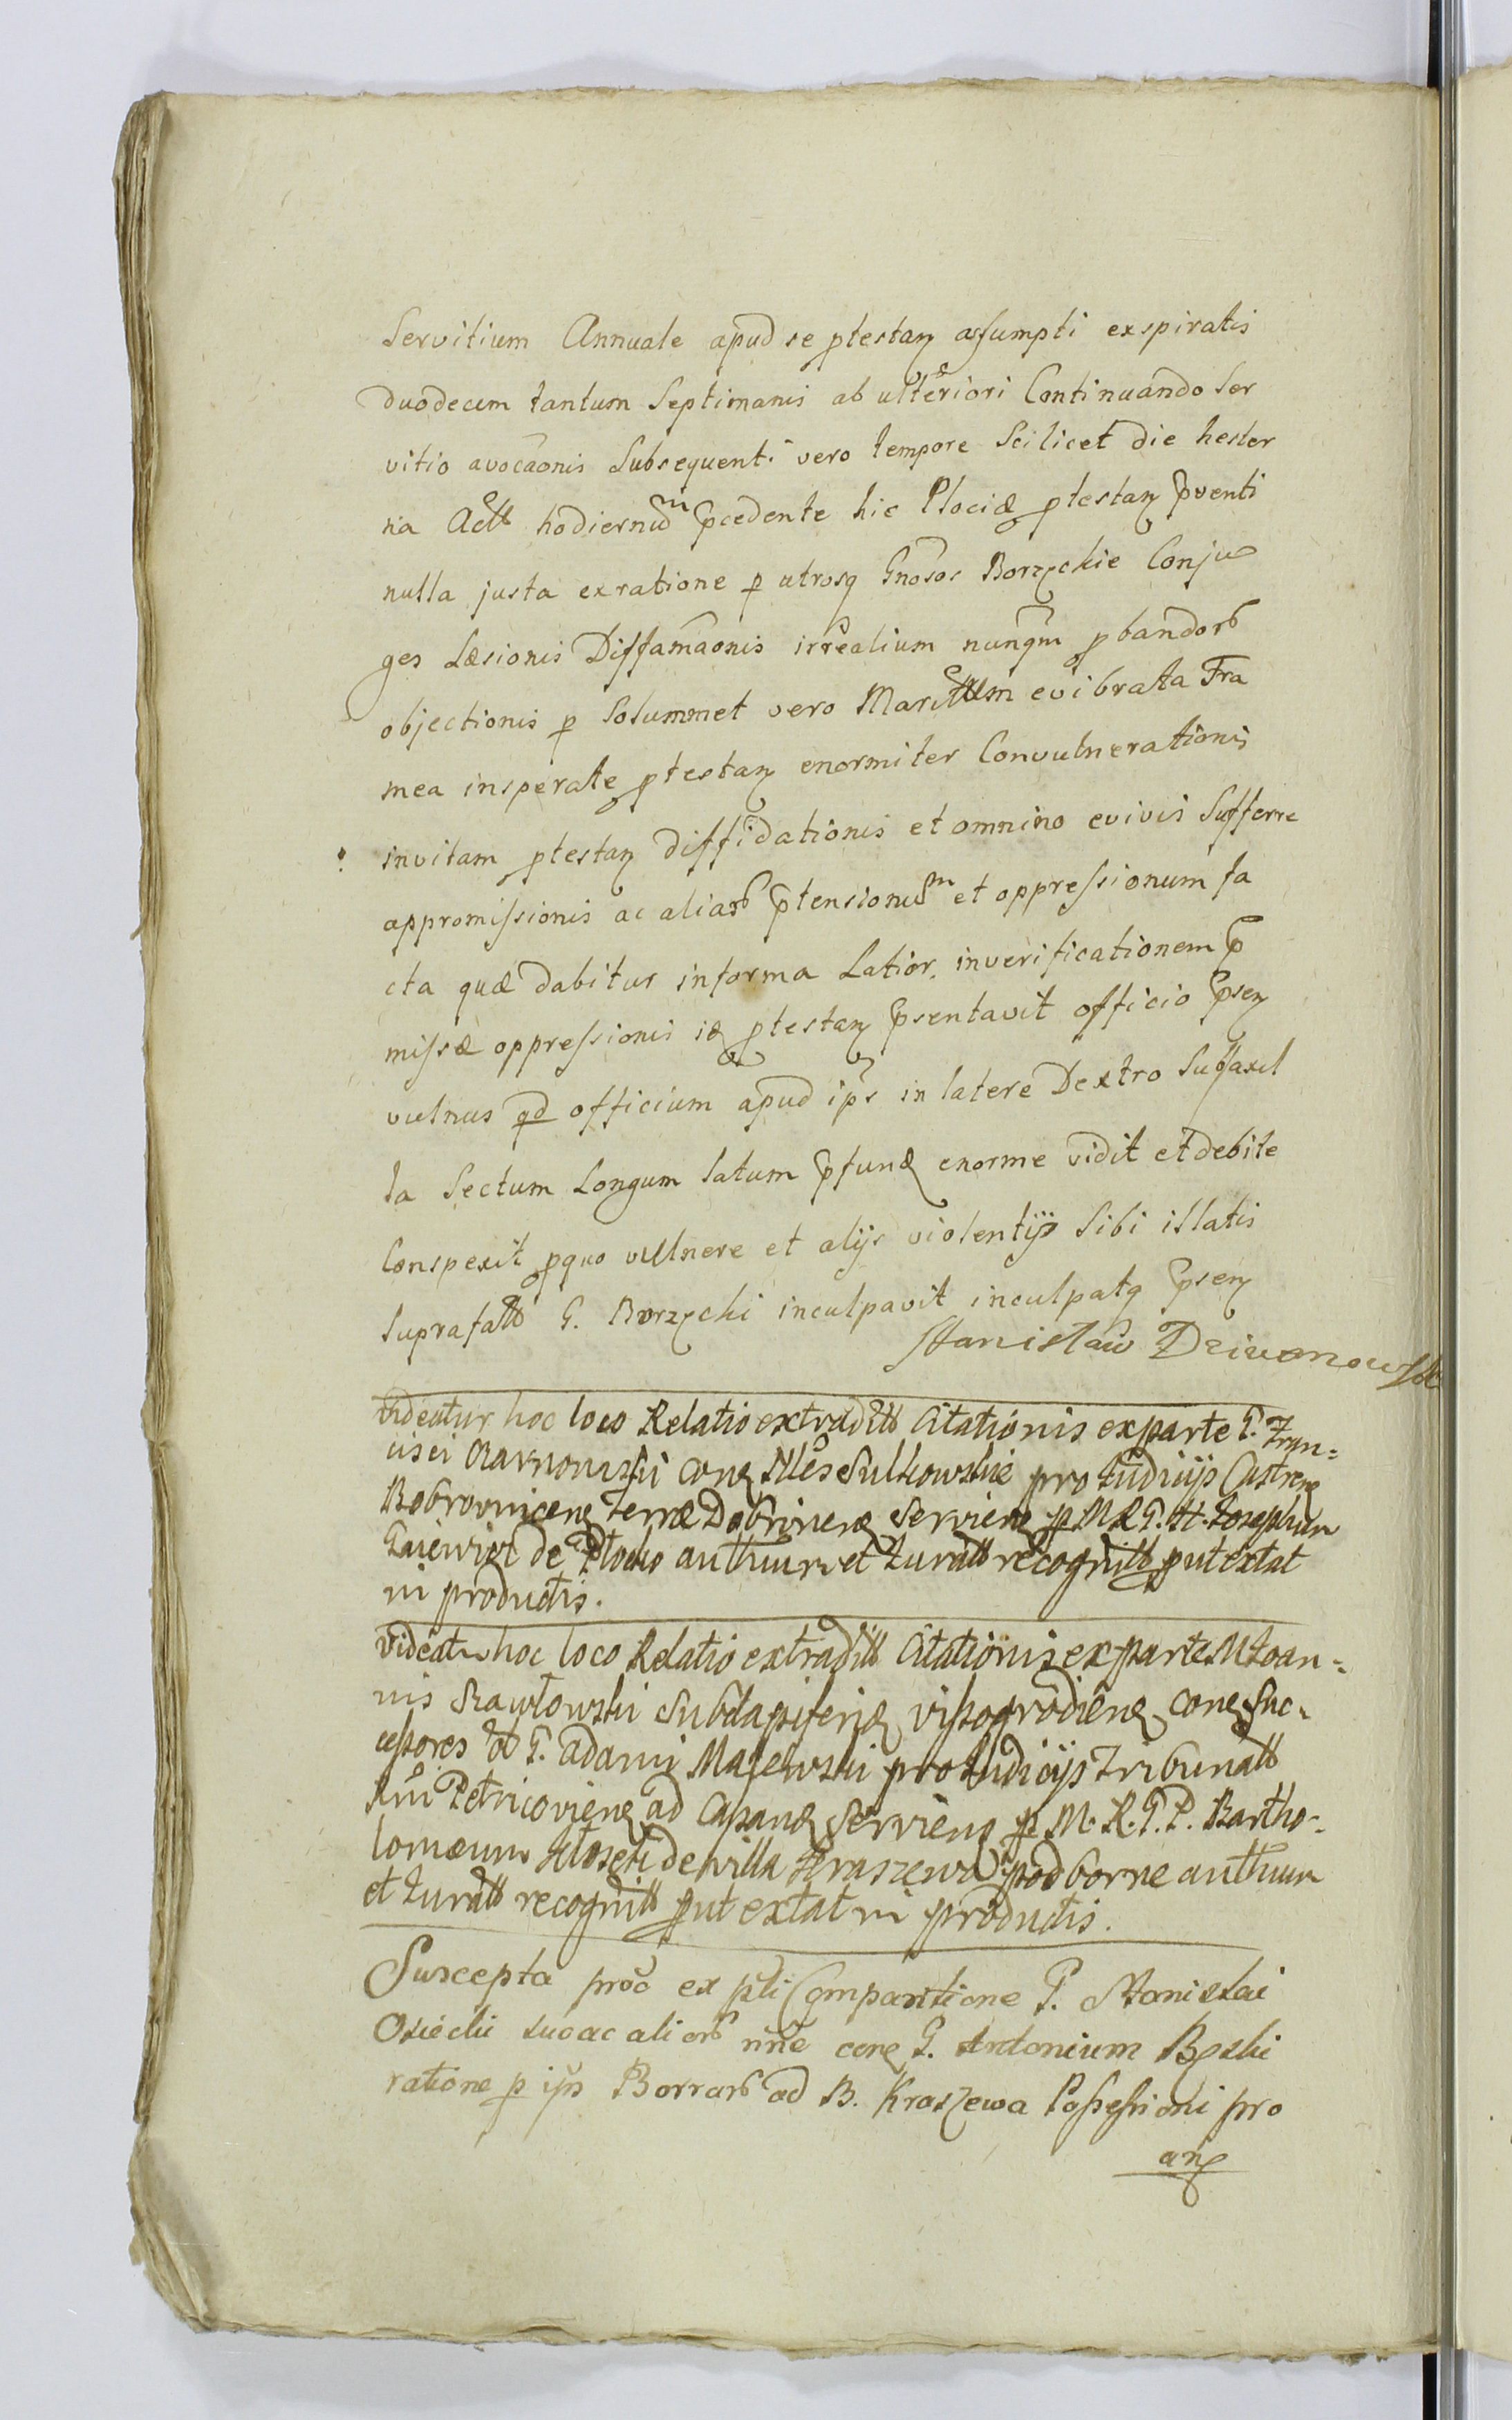 Servitium Annuale apud se ptestan assumpti exspiratis
duodecim tantum Septimanis ab ulteriori Continuando Ser
vitio avocaonis Subsequenti vero tempore Scilicet die hester
na Actb hodiernum pcedente hic Plociæ ptestan pventi
nulla justa exratione p utrosq Gnosos Borzęckie Conju
ges Læsionis Diffamaonis irrealium nunqm pbandorb
objectionis p Solummet vero Maritum evibrata Fra
mea insperate ptestan enormiter Convulnerationis
invitam ptestan diffidationis et omnino evivis Sufferre
appromissionis ac aliarb ptensionum et oppressionum fa
cta quæ dabitur informa Latior. inverificationem p
missæ oppressionis iq ptestan psentavit officio psen
vulnus qd officium apud ips in latere Dextro Suffaxil
la Sectum Longum latum pfunq enorme vidit et debite
Conspexit pquo vulnere et alijs violentijs Sibi illatis
Suprafatb G. Borzęcki inculpavit inculpatq psen
Stanisław Dziwanowski
Videatur hoc loco Relatio extraditb Citationis exparte G. Fran=
cisci conq Nles Sulkowskie pro Iudicijs Castrenq
Bobrovnicenq Terræ Dobrinenq Servienq p M R G. H. Iosephum
Gaiewicz de Plocko authum et Iuratb recognitb put extat
in productis.
Videatur hoc loco Relatio extraditb Citationis exparte M Ioan=
nis Szawłowski Subdapiferjq vissogrodienq conq Suc=
cessores G. Adami Majewski pro Iudicijs Tribunatb
Rni Petricovienq ad Capanq Servienq p M. R. G. P. Bartho-
lomæum Kłosek de villa Kraszewo podborne authum
et Iuratb recognitb put extat in productis.
Suscepta pro ex pli Comparitione G. Stanislai
Osiecki suo ac aliorb nne conq G. Antonium Bęski
ratione p ips Borrarb ad B. Kraszewa Possessioni pro
anq